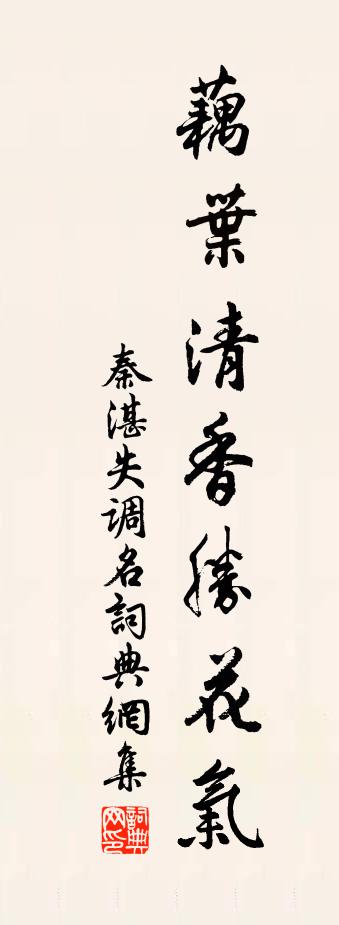 藕葉清香勝花氣
秦湛失调名詞典網集
詞典网印